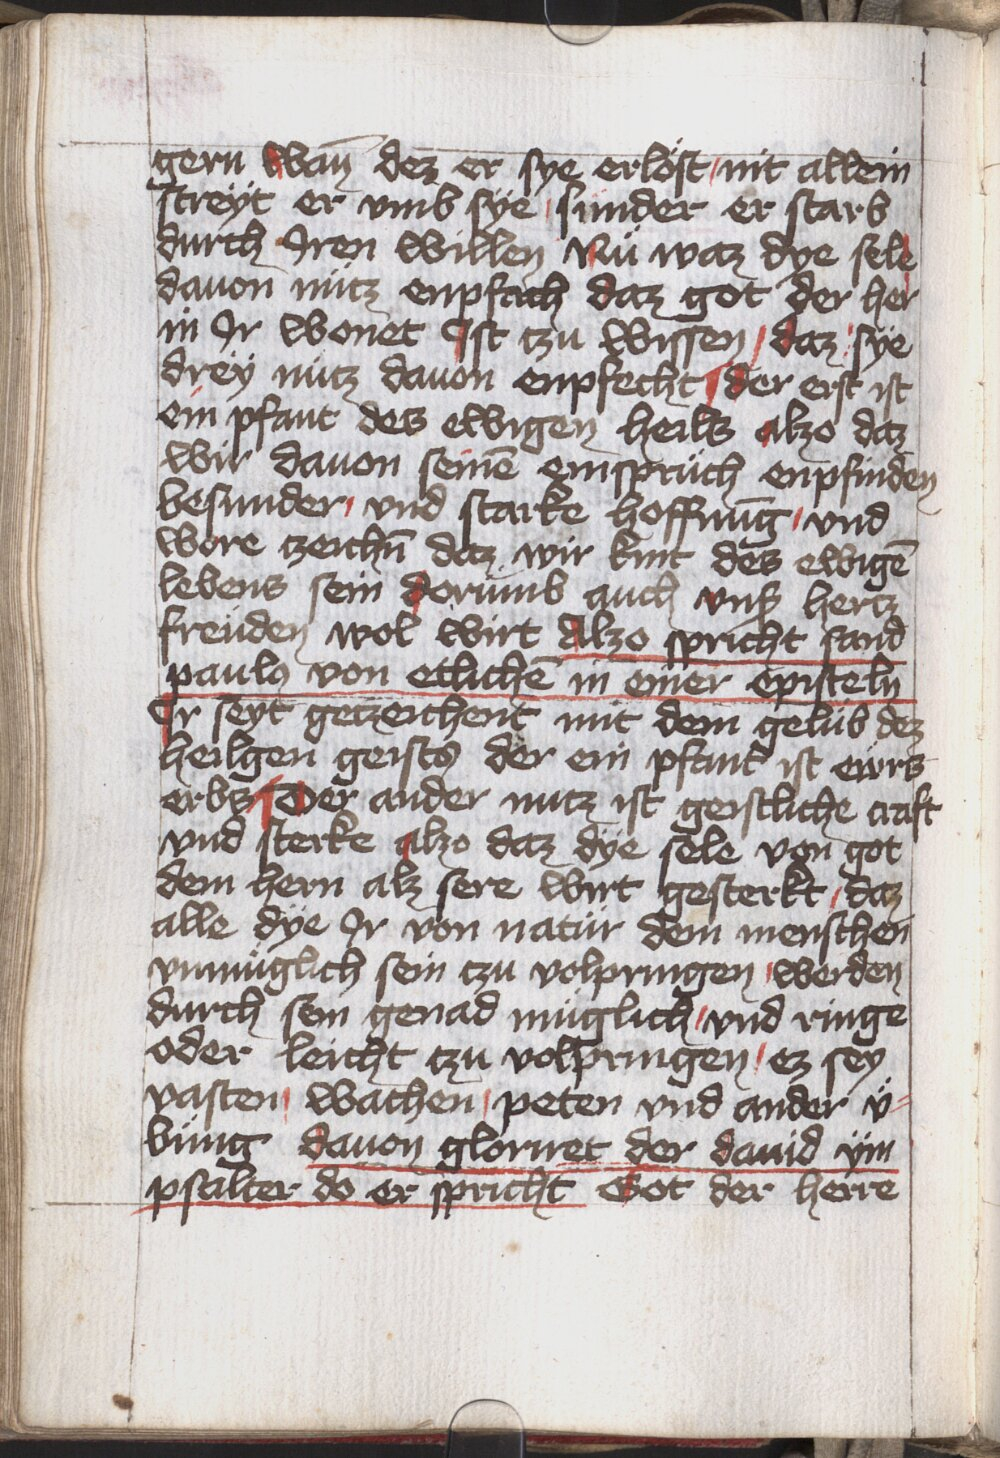 gern Wan̄ dez er sye erlöst / nit allein
streÿt er vmb sÿe / sunder er starb
durch Iren willen Nü waz dye sele
davon nütz enpfach daz got der her
in Ir wonet Ist tzu wissen / daz sÿe
dreÿ nütz davon enpfecht ¶ der erst ist
ein pfant des ewigen heils alzo daz
wir davon seinē einsprüch enpfinden
besunder / vnd starke hoffnūg / vnd
wore tzeichn̄ daz wir kint des ewigē
lebens sein dorumb auch vnß hertz
freüden wol wirt Alzo spricht sand
paulꝰ von etlichē in einer episteln
Ir seyt getzeichent mit dem gelüb dez
heilgen geistꝭ der ein pfant ist ewrs
erbs ¶ Der ander nutz ist geistliche craft
vnd sterke alzo daz dÿe sele von got
dem hern alz sere wirt gesterkt / daz
alle dÿe Ir von natür dem menschen
vnmüglich sein tzu volpringen / werden
durch sein genad müglich / vnd ringe
oder leicht tzu volpringen / ez sey
vasten / wachen / peten vnd ander ü=
büng davon gloriret der dauid ÿm
psalter do er spricht Got der herre